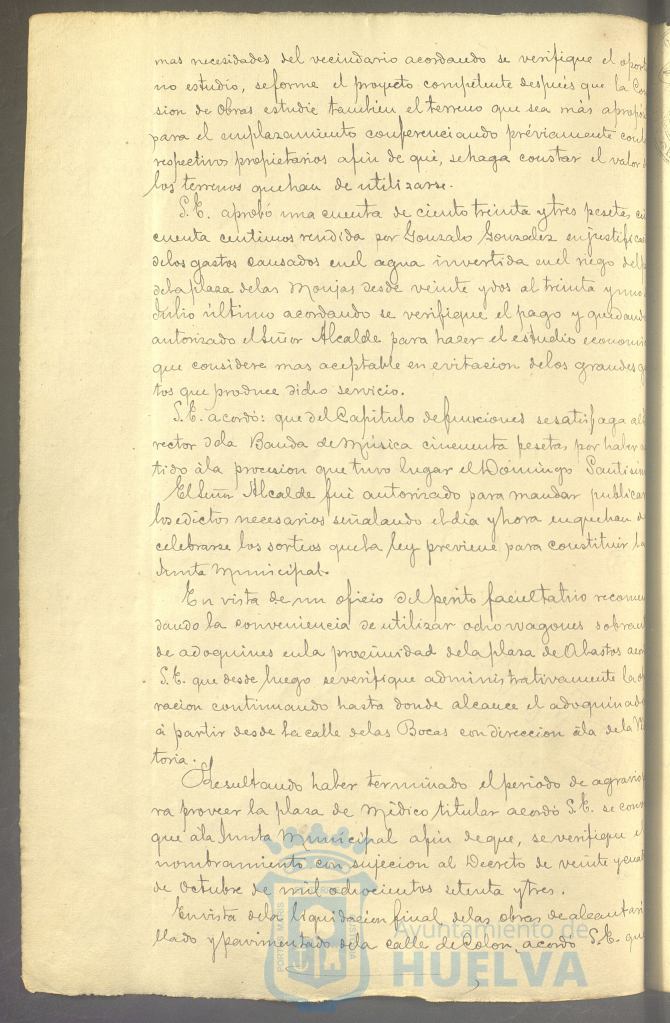 mas necesidades del vecindario acordando se verifique el oport
no estudio, se forme el proyecto competente después que la Com
sion de Obras estudie tambien el terreno que sea más apropó
para el emplazamiento conferenciando préviamente con l
respectivos propietarios afin de que, se haga constar el valor d
los terrenos que han de utilizarse.
S.E. aprobó una cuenta de ciento treinta y tres pesetas cin
cuenta centimos rendida por Gonzalo Gonzalez en justifica
de los gastos causados en el agua invertida en el riego del
de la plaza de las Monjas desde veinte y dos al treinta y uno
Julio último acordando se verifique el pago y quedando
autorizado el Señor Alcalde para hacer el estudio economic
que considere mas aceptable en evitacion de los grandes ga
tos que produce dicho servicio.
S.E. acordó: que del Capitulo de funciones se satisfaga al
rector de la Banda de Música cincuenta pesetas por haber
tido á la procesion que tuvo lugar el Domingo Santisim
El Señor Alcalde fué autorizado para mandar publicar
los edictos necesarios señalando el dia y hora en que han d
celebrarse los sorteos que la ley previene para constituir la
Junta Municipal.
En vista de un oficio del perito facultativo recomen
dando la conveniencia de utilizar ocho wagones sobran
de adoquines en la proximidad de la plaza de Abastos aco
S.E. que desde luego se verifique administrativamente la
racion continuando hasta donde alcance el adoquinado
á partir desde la calle de las Bocas con direccion á la de la Vi
toria.
Resultando haber terminado el periodo de
ra proveer la plaza de Médico titular acordó S.E. se con
que á la Junta Municipal afin de que, se verifique el
nombramiento con sujecion al Decreto de veinte y cuat
de Octubre de mil ochocientos setenta y tres.
En vista de la liquidacion final de las obras de alcantari
llado y pavimentado de la calle de Colon, acordó S.E. que
Ayuntamiento de
HUELVA